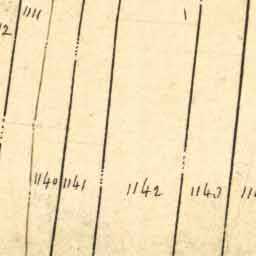 1111
1140 1141 1142 1143